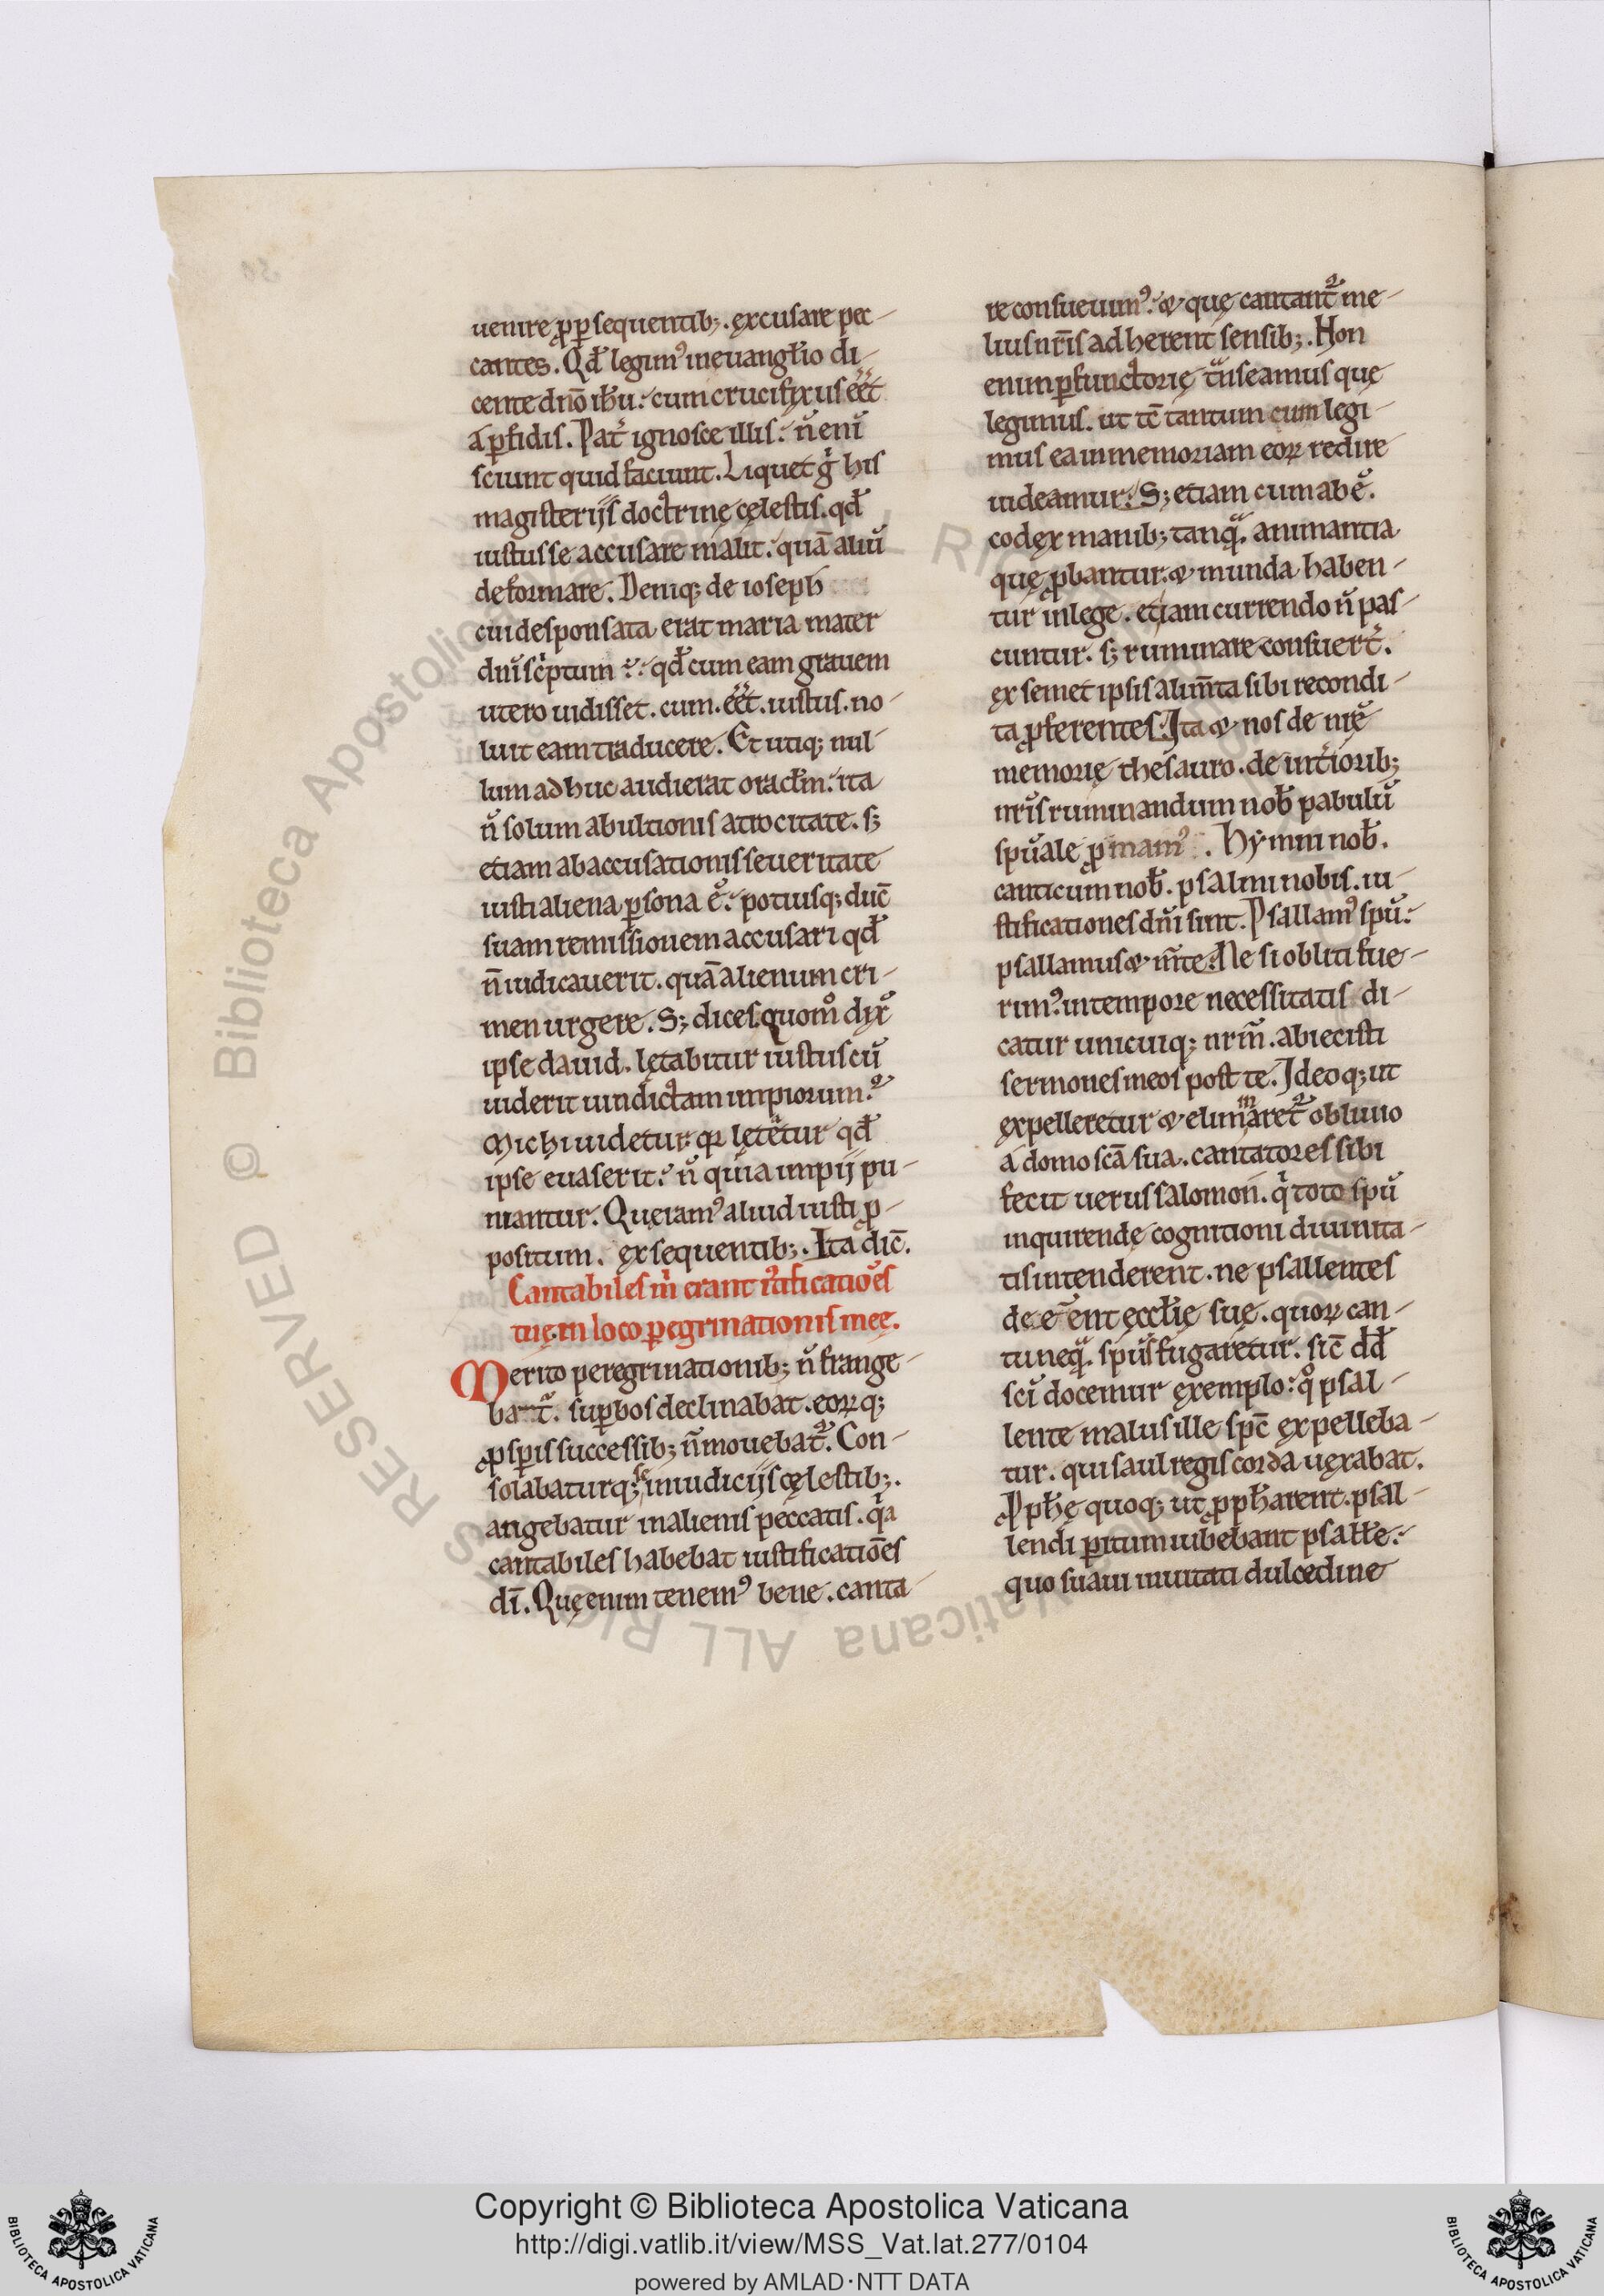 uenire ꝓ ꝑsequentib;. ęxcusare pec-
cantes. Qđ legim᾿ in euangłio di-
cente dn̄o ih̄u: cum crucifixus eēt
a ꝑfidis. Pat̄ ignosce illis: n̄ enī
sciunt quid faciunt. Liquet g̊ his
magisterijs doctrinę cęlestis. qđ
iustus se accusare malit: quā aliū
deformare. Deniq; de ioseph
cui desponsata erat maria mater
dn̄i sc̄ptum ē: qđ cum eam grauem
utero uidisset. cum eēt iustus. no-
luit eam traducere. Et utiq; nul-
lum adhuc audierat oracłm: ita
n̄ solum ab ultionis atrocitate. s;
etiam ab accusationis seueritate
iusti aliena ꝑsona ē: potiusq; duc̄
suam remissionem accusari qđ
n̄ uindicauerit. quā alienum cri-
men urgere. S; dices quom̊ dix̄
ipse dauid. lętabitur iustus cū
uiderit uindictam impiorum.
Michi uidetur qꝛ lętetur qđ
ipse euaserit: n̄ quia impij pu-
niantur. Quęram᾿ aliud iusti ꝓ-
positum. ęx sequentib;. Ita dic̄.
Cantabiles m̄ erant iūtificatiōes
tuę. in loco ꝑegrinationis meę.
Merito peregrinationib; n̄ frange-
bat᷑. suꝑbos declinabat. eoꝝq;
ꝓsꝑis successib; n̄ mouebat᷑. Con-
solabaturq; se in iudicijs cęlestib;.
angebatur in alienis peccatis. q̄a
cantabiles habebat iustificatiōes
dī. Quę enim tenem᾿ bene. canta-
re consueuim᾿: & quę cantant᷑ me-
lius nr̄is adherent sensib;. Non
enim ꝑfunctorię tn̄seamus quę
legimus. ut tc̄ tantum cum legi-
mus ea in memoriam eoꝝ redire
uideamur. S; etiam cum abē.
codęx manib; tanq̄. animantia
quę ꝓbantur. & munda haben-
tur in lege. etiam currendo n̄ pas-
cuntur. s; ruminare consuert̄.
ęx semet ipsis alim̄ta sibi recondi-
ta ꝓferentes. Ita & nos de nr̄ę
memorię thesauro. de int̄iorib;
nr̄is ruminandum nob̄ pabulū
spūale ꝓmam᾿. Hymni nob̄.
canticum nob̄. psalmi nobis. iu-
stificationes dn̄i sunt. Psallam᾿ spū:
psallamus & m̄te. Ne si obliti fue-
rim᾿ in tempore necessitatis di-
catur unicuiq; nr̄m. abiecisti
sermones meos post te. Ideoq; ut
ęxpelleretur & eliminaret᷑ obliuio
a domo scā sua. cantatores sibi
fecit uerus salomon. q̄ toto spū
inquirendę cognitioni diuinita-
tis intenderent. ne psallentes
deeēent ęccłię suę. quoꝝ can-
tu neq̄. spūs fugaretur. sic̄ dđ
scī docemur ęxemplo: q̊ psal-
lente malus ille spc̄ ęxpelleba-
tur. qui saul regis corda uęxabat.
Ꝓpħę quoq; ut ꝓpħarent. psal-
lendi ꝑitum iubebant psałłe:
quo suaui inuitati dulcedine
Copyright © Biblioteca Apostolica Vaticana
http://digi.vatlib.it/view/MSS_Vat.lat.277/0104
powered by AMLAD·NTT DATA